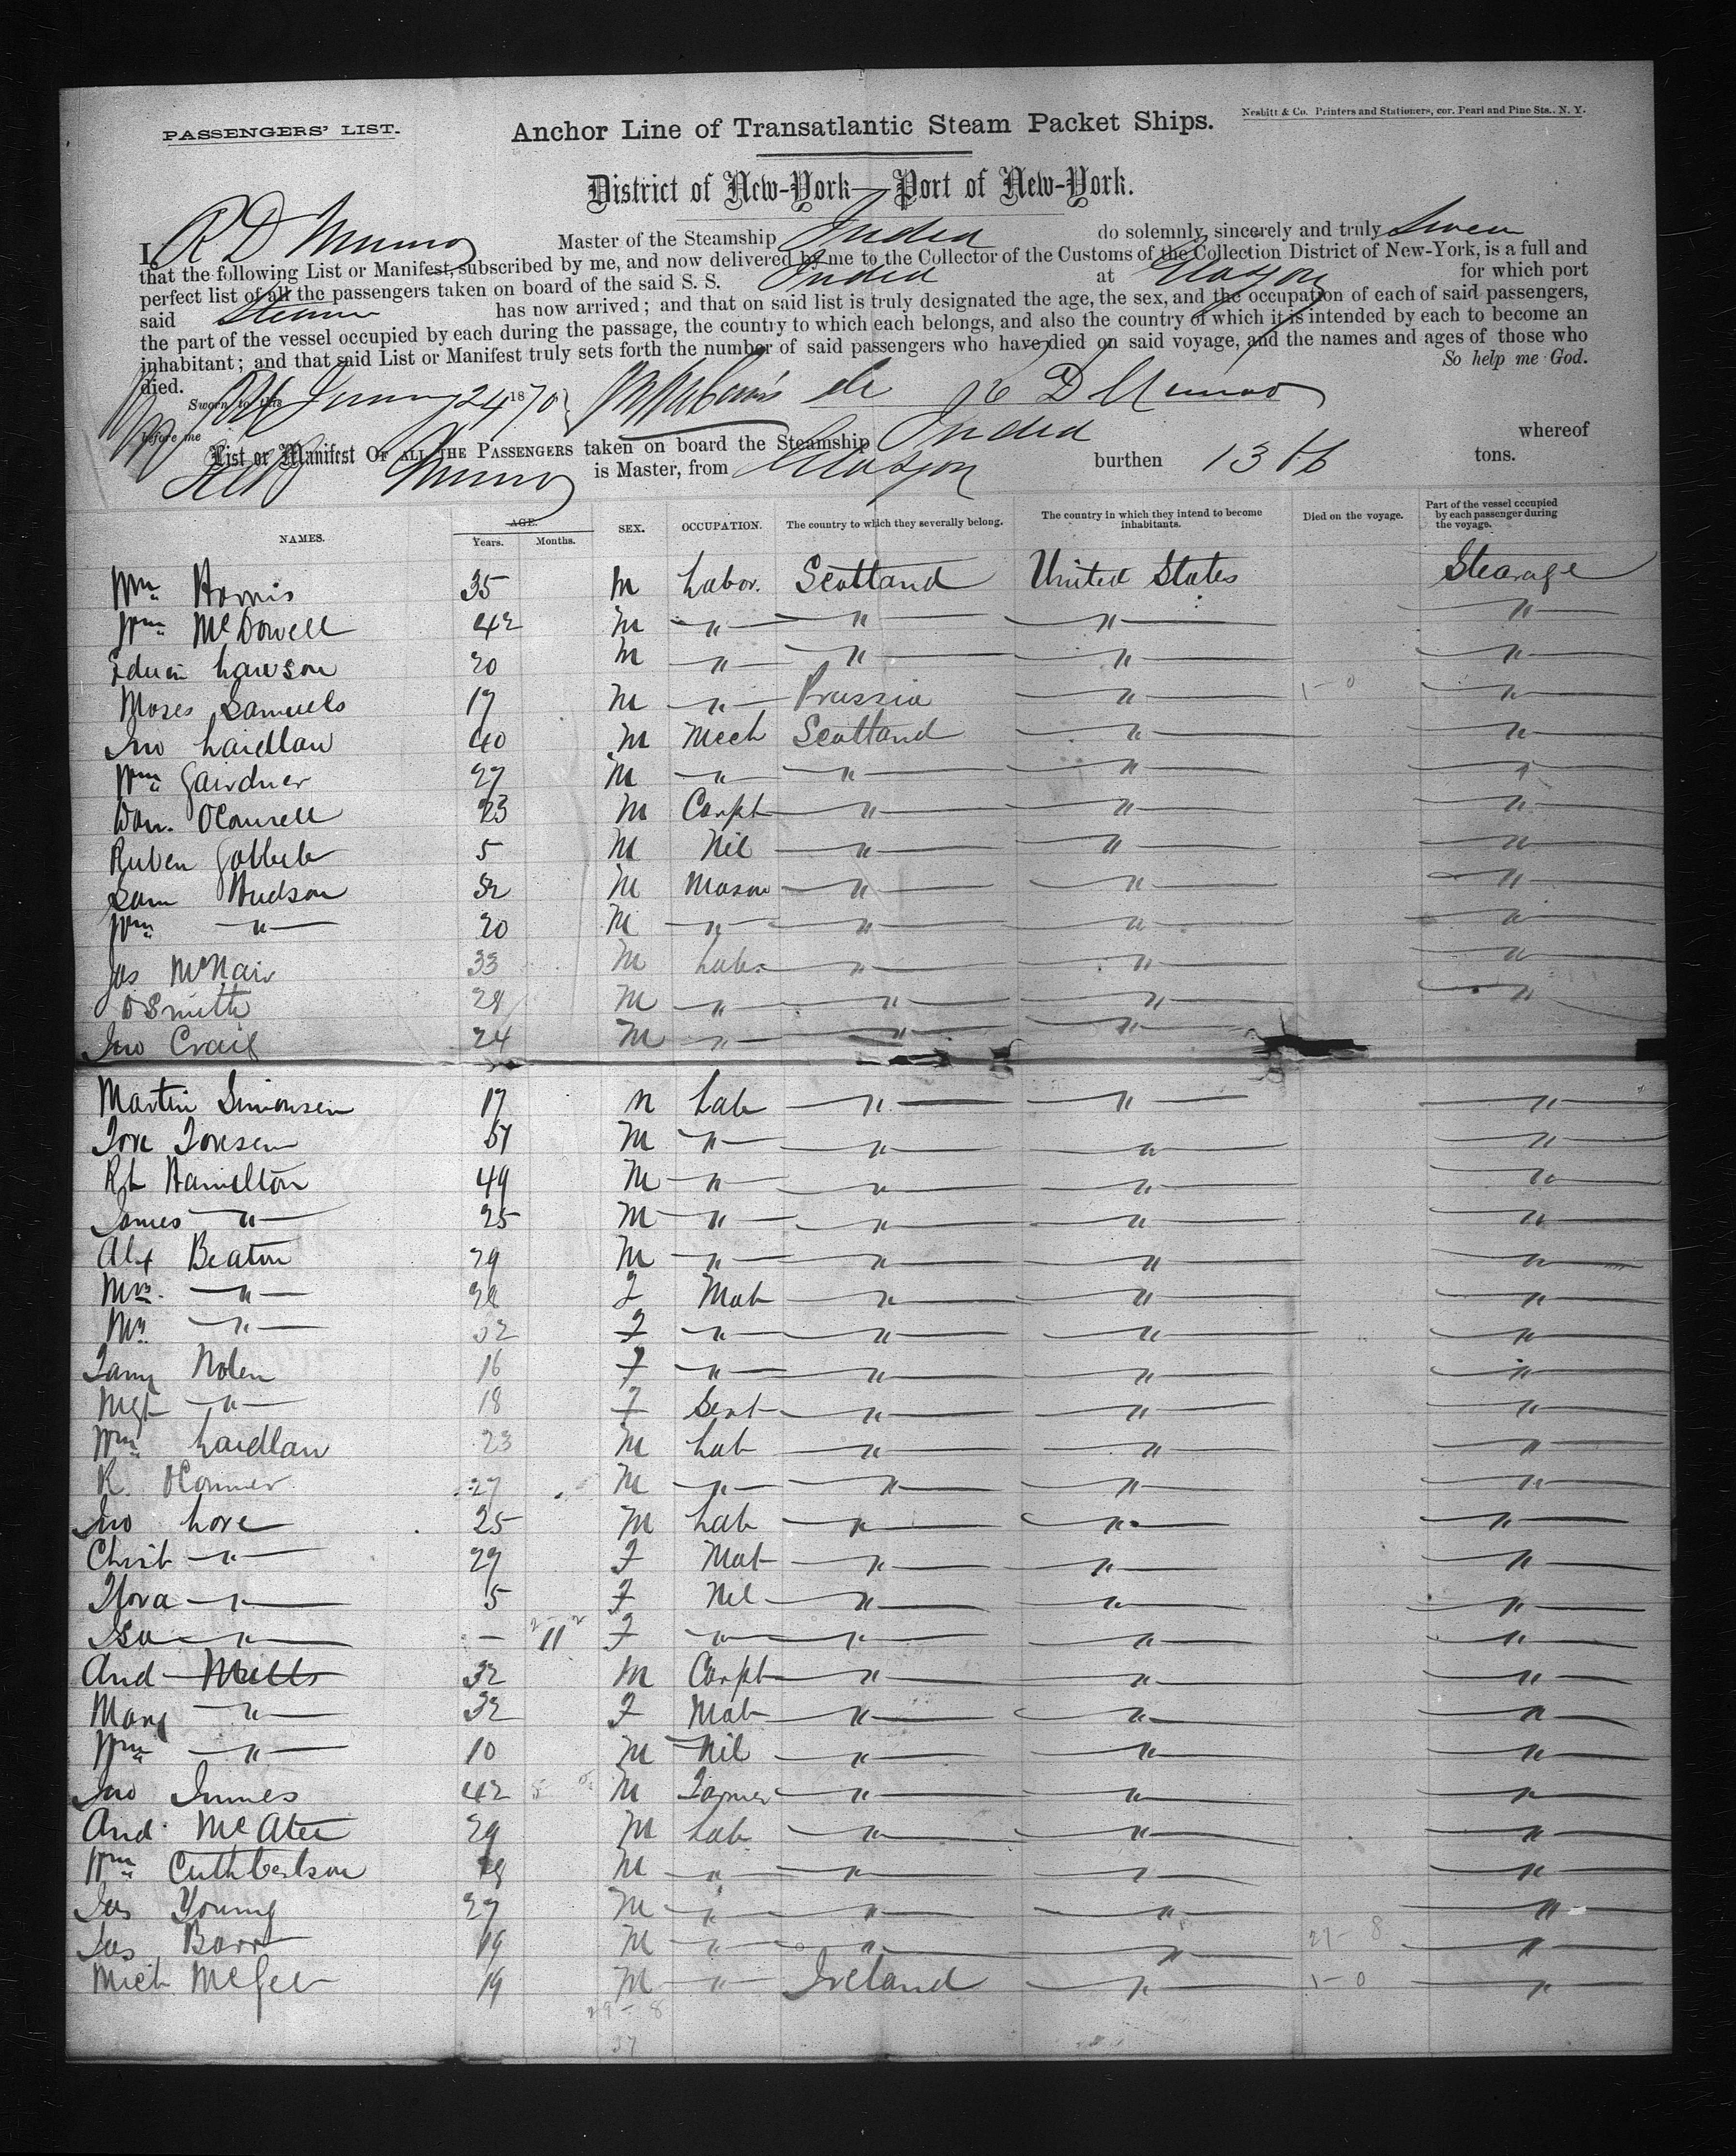 PASSENGERS' LIST.
Anchor Line of Transatlantic Steam Packet Ships.
Nesbitt & Co. Printers and Stationers, cor. Pearl and Pine Sts., N. Y.
District of New-York—Port of New-York.
I, R D Munro Master of the Steamship India do solemnly, sincerely and truly Swear
that the following List or Manifest, subscribed by me, and now delivered by me to the Collector of the Customs of the Collection District of New-York, is a full and
perfect list of all the passengers taken on board of the said S. S. India at Glasgow for which port
said Steamer has now arrived; and that on said list is truly designated the age, the sex, and the occupation of each of said passengers,
the part of the vessel occupied by each during the passage, the country to which each belongs, and also the country of which it is intended by each to become an
inhabitant; and that said List or Manifest truly sets forth the number of said passengers who have died on said voyage, and the names and ages of those who
died. So help me God.
Sworn to this 24 1870 R D Munro
before me
List or Manifest OF ALL THE PASSENGERS taken on board the Steamship India whereof
Munro is Master, from Glasgow burthen tons.
NAMES. AGE. Years. Months. SEX. OCCUPATION. The country to which they severally belong. The country in which they intend to become inhabitants. Died on the voyage. Part of the vessel occupied by each passenger during the voyage.
Wm Harris 35 M Labor. Scotland United States Stearage
Wm McDowell 42 M " " " "
Edwin Lawson 20 M " " " "
Moses Samuels 17 M " Prussia " 1-0 "
Jno Laidlaw 40 M Mech Scotland " "
Wm Gairdner 27 M " " " "
Dan. OConnell 23 M Carpt " " "
Ruben 5 M Nil " " "
Sam Hudson 32 M Mason " " "
Wm " 20 M " " " "
Jas McNair 33 M Labr " " "
D Smith 28 M " " " "
Jno Craig 24 M " " "
Martin Simonsen 17 M Lab " " "
Tore Toresen M " " " "
Rt Hamilton 49 M " " " "
James " 25 M " " " "
Alex Beaton 29 M " " " "
Mrs. " 28 F Mat " " "
" 32 F " " " "
Nolen 16 F " " " "
Mgt " 18 F Servt " " "
Wm Laidlaw 23 M Lab " " "
R. OConner 27 M " " " "
Jno Love 25 M Lab " " "
Christ " 27 F Mat " " "
Flora " 5 F Nil " " "
Isa " — 11 F " " " "
And Mills 32 M Carpt " " "
Mary " 32 F Mat " " "
Wm " 10 M Nil " " "
Jno Innes 42 M Farmer " " "
And McAtee 29 M Lab " " "
Wm Cuthbertson M " " " "
Jas Young 27 M " " " "
Jas Barr 19 M " " " 27-8 "
Mich McGee 19 M " Ireland " 1-0 "
29-8
37